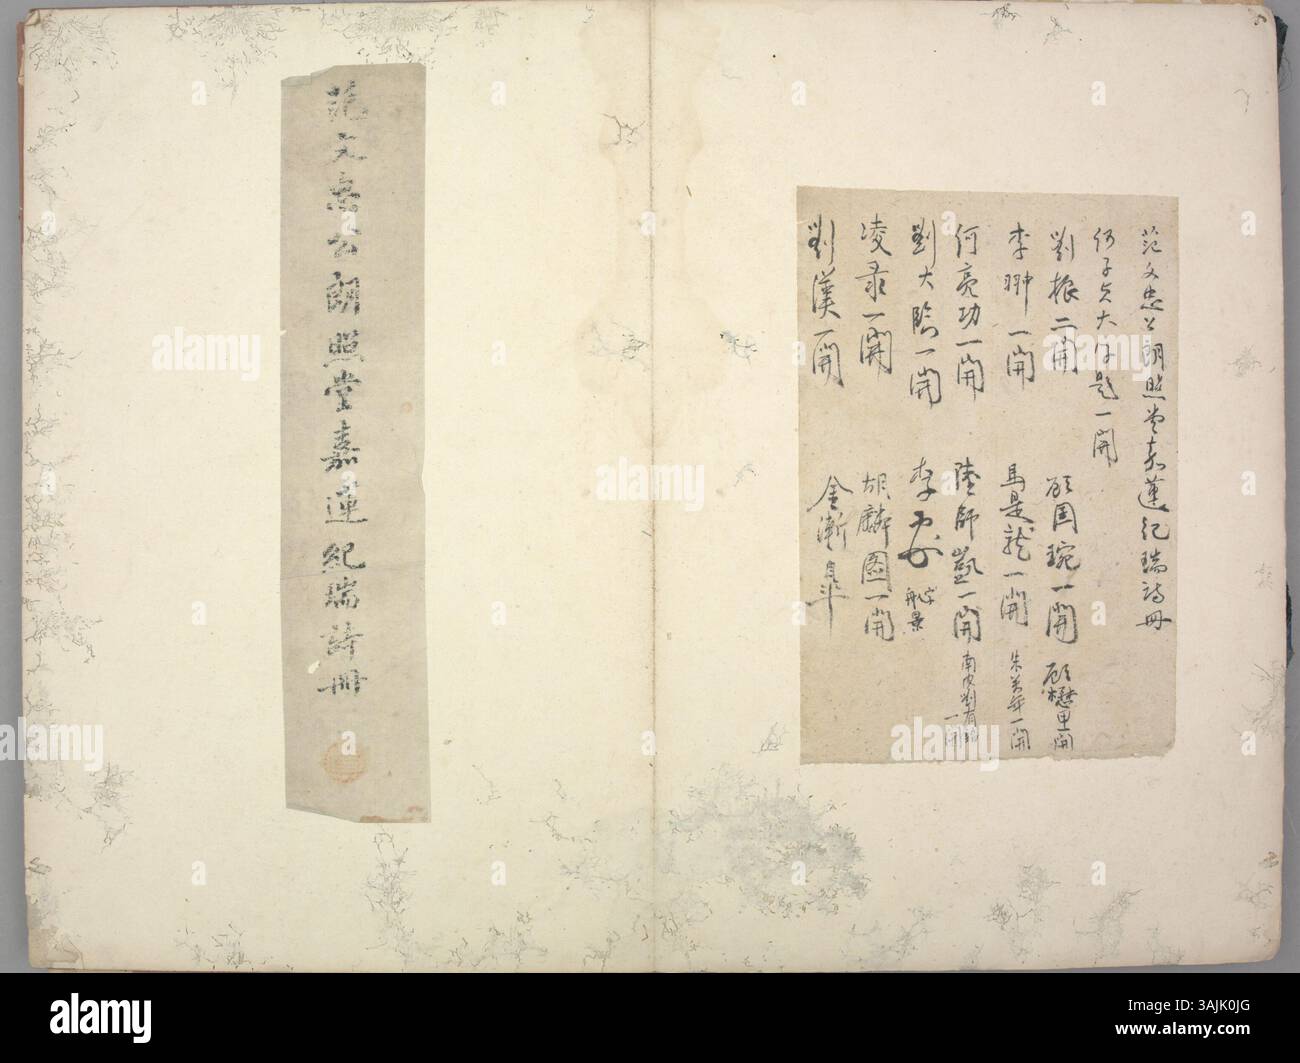 范文忠公朗照堂嘉蓮紀瑞詩冊
何子貞大字題一開
劉振二開 顧國琬一開 顧懋里開
李翀一開 馬是龍一開 朱美年一開
何亮功一開 陸師 一開 南皮劉有 一開
劉大臨一開 李 景
凌录一開 胡麟圖一開
劉漢一開 金漸皋
范文忠公朗照堂嘉蓮紀瑞詩冊
alamy
Image ID: 3AJK0JG
www.alamy.com